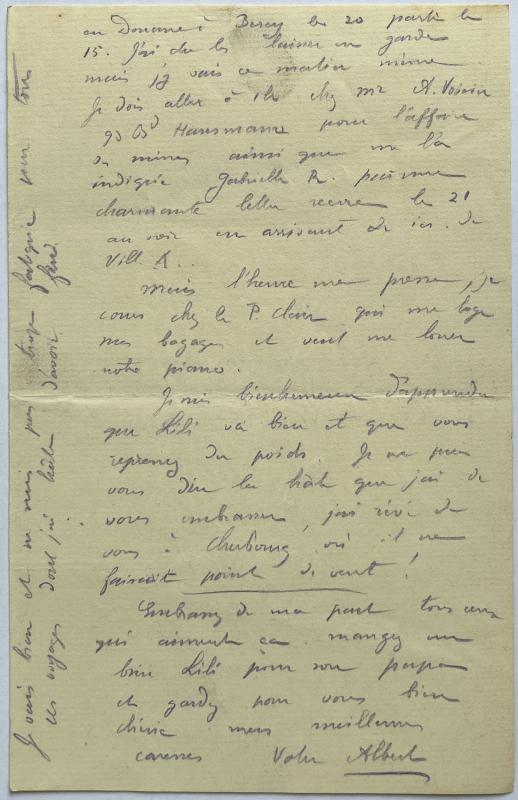 en Douane à Bercy le 20 parti le
15. J'ai dû les laisser en garde
mais j'y vais ce matin même
Je dois aller à 1h chez Mr A. Voisin
93 Bd Hausmann pour l'affaire
de mines ainsi que me l'a
indiqué Gabrielle R. par une
charmante lettre reçue le 21
au soir en arrivant de ici. de
Vill. R..
Mais l'heure me presse, je
cours chez le P. Clair qui me loge
mes bagages et veut me louer
notre piano.
Je suis bienheureux d'apprendre
que Lili va bien et que vous
reprenez du poids. Je ne puis
vous dire la hâte que j'ai de
vous embrasser, j'ai rêvé de
vous à Cherbourg où il ne
faisait point de vent !
Embrassez de ma part tous ceux
qui aiment ça. mangez un
bien Lili pour son papa
et gardez pour vous bien
chérie mes meilleures
caresses Votre Albert
Je vais bien et ne suis pas trop fatigué par tous
ces voyages dont j'ai hâte d'avoir fini.